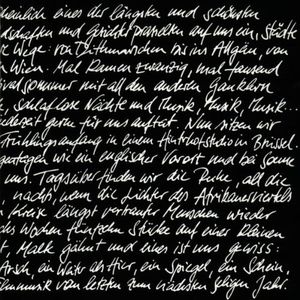 heinlich eines der längsten und schönsten
schaften und Gesichter prasselten auf uns ein, Städte
Wege: von Dithmarschen bis ins Allgäu, von
Wien. Mal kamen zwanzig, mal tausend
sommer mit all den andern Gauklern
schlaflose Nächte und Musik, Musik, Musik...
jederzeit gern für uns auftat. Nun sitzen wir
Frühlingsanfang in einem Hinterhofstudio in Brüssel.
wie ein englischer Vorort und bei Sonne
uns. Tagsüber finden wir die Ruhe, all die
nachts, wenn die Lichter des Afrikanerviertels
Kreis längst vertrauter Menschen wieder
Wochen fünfzehn Stücke auf einer kleinen
Malk gähnt und eines ist uns gewiss:
Arsch, ein Wirt als Hier, ein Spiegel, ein Schein,
Filmmusik vom letzten zum nächsten seligen Jahr.